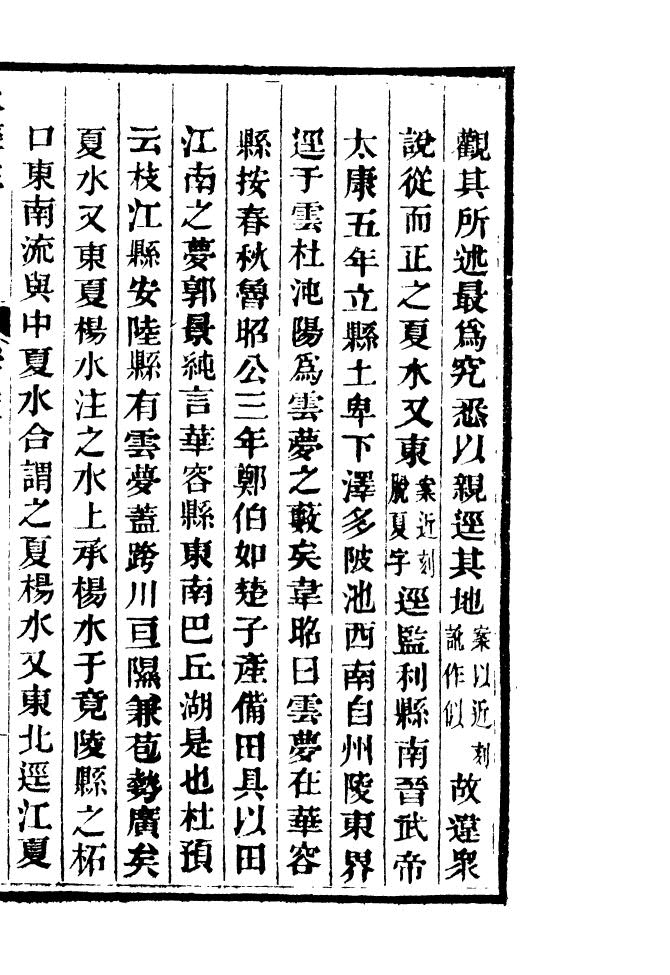 觀其所述最爲究悉以親逕其地案以近刻訛作似故違衆
說從而正之夏水又東案近刻脫夏字逕監利縣南晉武帝
太康五年立縣土卑下澤多陂池西南自州陵東界
逕于雲杜沌陽爲雲夢之藪矣韋昭曰雲夢在華容
縣按春秋魯昭公三年鄭伯如楚子產備田具以田
江南之夢郭景純言華容縣東南巴丘湖是也杜預
云枝江縣安陸縣有雲夢蓋跨川亘隰兼苞勢廣矣
夏水又東夏楊水注之水上承楊水于竟陵縣之柘
口東南流與中夏水合謂之夏楊水又東北逕江夏